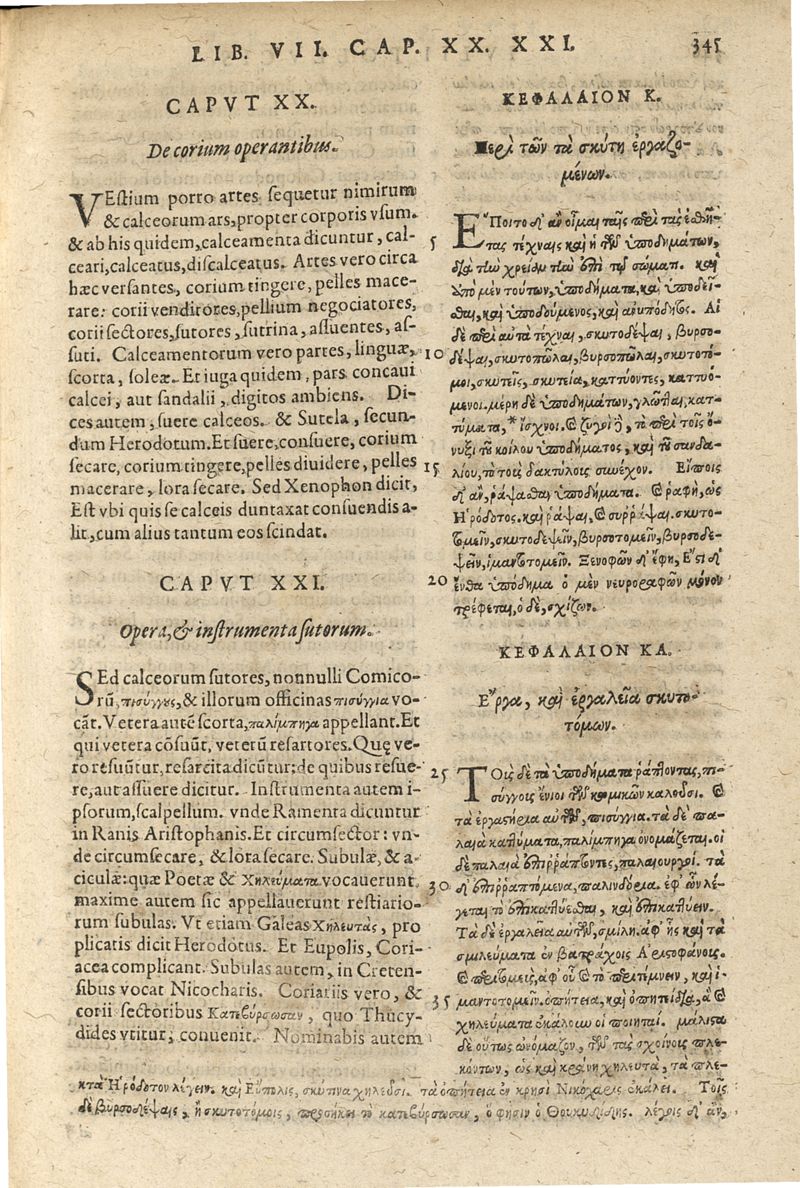 LIB. VII. CAP. XX. XXI. 345
CAPVT XX.
De corium operantibus.
VEstium porro artes sequetur nimirum
& calceorum ars, propter corporis vsum.
& ab his quidem, calceamenta dicuntur, cal-
ceari, calceatus, discalceatus. Artes vero circa
hæc versantes, corium tingere, pelles mace-
rare: corii venditores, pellium negociatores,
corii sectores, sutores, sutrina, assuentes, as-
suti. Calceamentorum vero partes, linguæ,
scorta, soleæ. Et iuga quidem, pars concaui
calcei, aut sandalii, digitos ambiens. Di-
ces autem, suere calceos. & Sutela, secun-
dum Herodotum. Et suere, consuere, corium
secare, corium tingere, pelles diuidere, pelles
macerare, lora secare. Sed Xenophon dicit,
Est vbi quis e calceis duntaxat consuendis a-
lit, cum alius tantum eos scindat.
CAPVT XXI.
Opera, & instrumenta sutorum.
SEd calceorum sutores, nonnulli Comico-
rū, πισύγγους, & illorum officinas πισύγγια vo-
cāt. Vetera autē scorta, παλίμπηγα appellant. Et
qui vetera cōsuūt, veterū resartores. Quę ve-
ro resuūtur, resarcita dicūtur: de quibus resue-
re, aut assuere dicitur. Instrumenta autem i-
psorum, scalpellum. vnde Ramenta dicuntur
in Ranis Aristophanis. Et circumsector: vn-
de circumsecare, & lora secare. Subulæ, & a-
ciculæ: quæ Poetæ & Χηλεύματα vocauerunt
maxime autem sic appellauerunt restiario-
rum subulas. Vt etiam Galeas Χηλευτὰς, pro
plicatis dicit Herodotus. Et Eupolis, Cori-
acea complicant. Subulas autem, in Creten-
sibus vocat Nicocharis. Coriariis vero, &
corii sectoribus Κατεβύρσωσαν, quo Thucy-
dides vtitur, conuenit. Nominabis autem
ΚΕΦΑΛΑΙΟΝ Κ.
Περὶ τῶν τὰ σκύτη ἐργαζο-
μένων.
ἝΠοιτο δ' ἂν οἶμαι ταῖς περὶ τὰς ἐσθῆ-
5 τας τέχναις καὶ ἡ τῶν ὑποδημάτων,
διὰ τὴν χρείαν τὴν ἐπὶ τῷ σώματι. καὶ
ἀπὸ μὲν τούτων, ὑποδήματα, καὶ ὑποδεῖ-
σθαι, καὶ ὑποδούμενος, καὶ ἀνυπόδητος. Αἱ
δὲ περὶ αὐτὰ τέχναι, σκυτοδέψαι, βυρσο-
10 δέψαι, σκυτοπῶλαι, βυρσοπῶλαι, σκυτοτό-
μοι, σκυτεῖς, σκυτεία, καττύοντες, καττυό-
μενοι. μέρη δὲ ὑποδημάτων, γλῶτται, κατ-
τύματα, * ἴσχνοι. καὶ ζυγοὶ ἢ, τὸ περὶ τοῖς ὄ-
νυξι τοῦ κοίλου ὑποδήματος, καὶ τοῦ σανδα-
15 λίου, τὸ τοῖς δακτύλοις συνέχον. Εἴποις
δ' ἂν, ῥάψασθαι ὑποδήματα. καὶ ῥαφὴ, ὡς
Ἡρόδοτος. καὶ ῥάψαι, καὶ συῤῥάψαι. σκυτο-
τομεῖν, σκυτοδεψεῖν, βυρσοτομεῖν, βυρσοδε-
ψεῖν, ἱμαντοτομεῖν. Ξενοφῶν δ' ἔφη, Ἔστι δ'
20 ἔνθα ὑπόδημα ὁ μὲν νευροραφῶν μόνον
τρέφεται, ὁ δὲ, σχίζων.
ΚΕΦΑΛΑΙΟΝ ΚΑ.
Ἔργα, καὶ ἐργαλεῖα σκυτο-
τόμων.
25 ΤΟῖς δὲ τὰ ὑποδήματα ῥάπτοντας, πι-
σύγγοις ἔνιοι τῶν κωμικῶν καλοῦσι. καὶ
τὰ ἐργαστήρια αὐτῶν, πισύγγια. τὰ δὲ πα-
λαιὰ καττύματα, παλίμπηγα ὀνομάζεται. οἱ
δὲ παλαιὰ ἐπιῤῥάπτοντες, παλαιουργοί. τὰ
30 δ' ἐπιῤῥαπτόμενα, παλινδορία. ἐφ' ὧν λέ-
γεται τὸ ἐπικαττύεσθαι, καὶ ἐπικαττύειν.
Τὰ δὲ ἐργαλεῖα αὐτῶν, σμίλη. ἀφ' ἧς καὶ τὰ
σμιλεύματα ἐν βατράχοις Ἀριστοφάνοις.
καὶ περιτομεῖς, ἀφ' οὗ καὶ τὸ περιτέμνειν, καὶ ἱ-
35 μαντοτομεῖν. ὀπήτεια, καὶ ὀπητίδια, ἃ καὶ
χηλεύματα ἐκάλουν οἱ ποιηταί. μάλιστα
δὲ οὕτως ὠνόμαζον, τῶν τὰς σχοίνοις πλε-
κόντων, ὡς καὶ κράνη χηλευτὰ, τὰ πλε-
κτὰ Ἡρόδοτον λέγειν. καὶ Εὔπολις, σκύτινα χηλεύσι. τὰ ὀπήτεια ἐν κρησὶ Νικόχαρις ἐκάλει. Τοῖς
δὲ βυρσοδέψαις, ἢ σκυτοτόμοις, προσήκει τὸ κατεβύρσωσαν, ὅ φησιν ὁ Θουκυδίδης. λέγοις δ' ἂν,